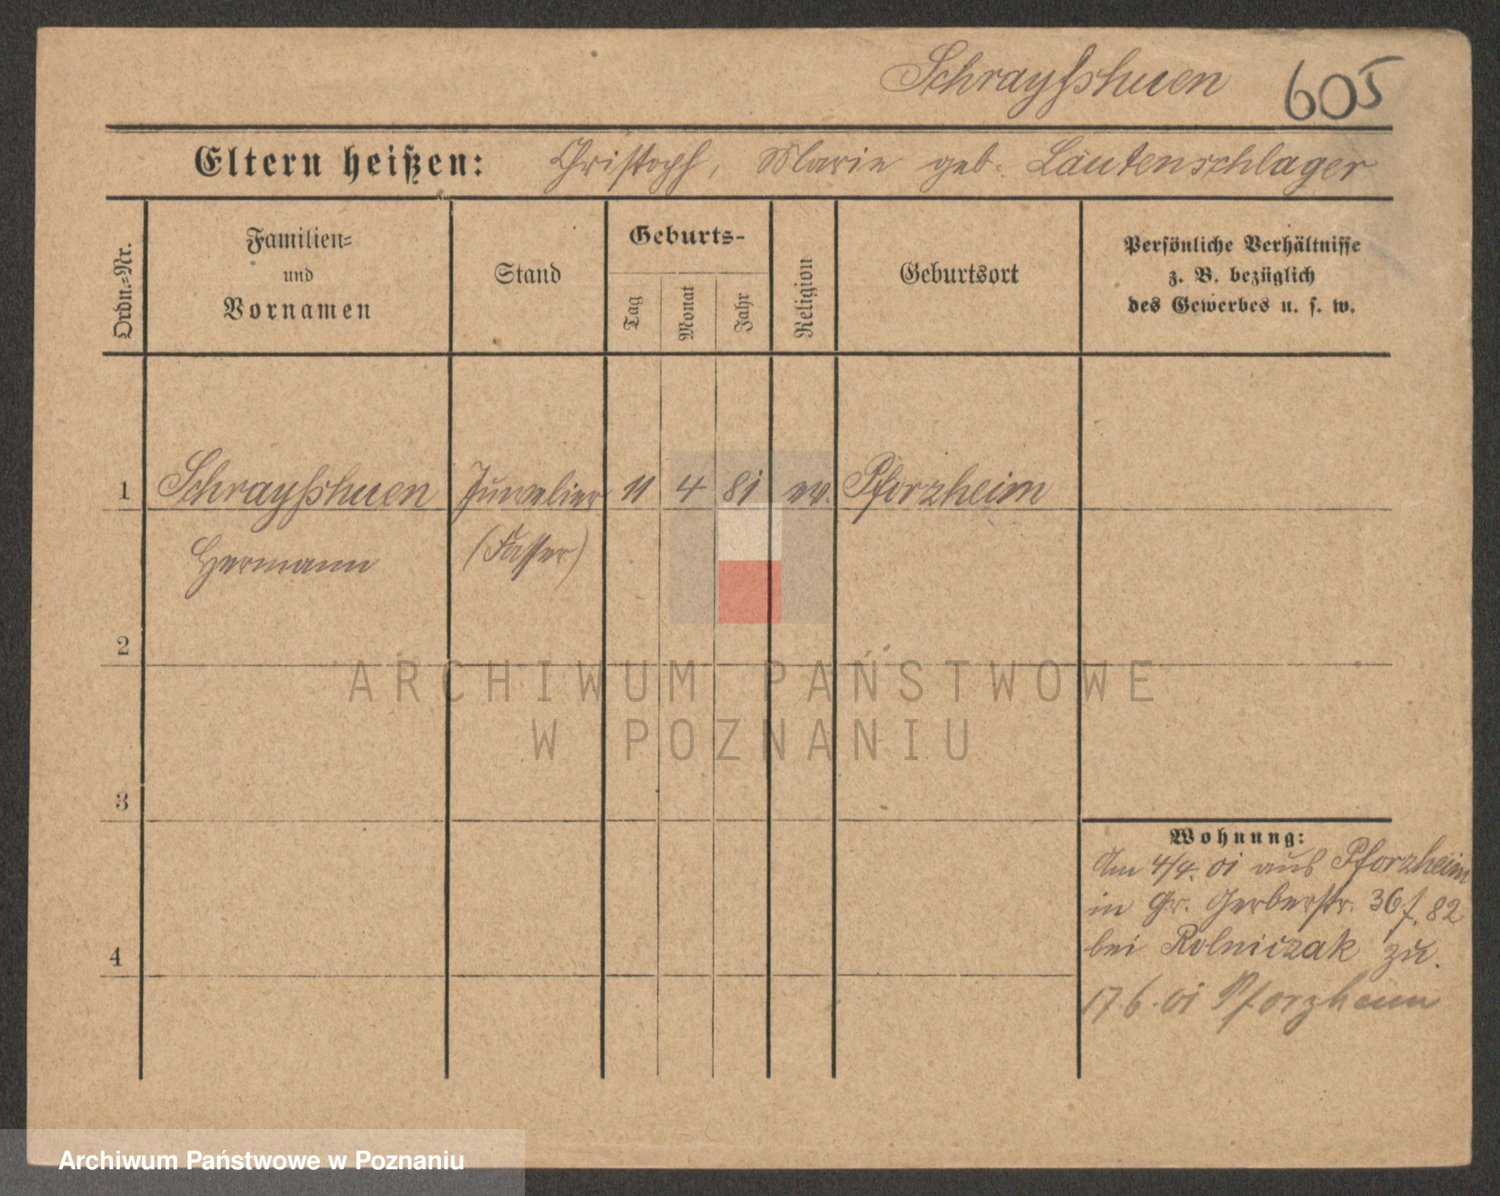 Schrayshuen 605
Eltern heißen: Christoph, Marie geb. Lautenschlager
Ordn.-Nr.
Familien-
und
Vornamen
Stand
Geburts-
Tag
Monat
Jahr
Religion
Geburtsort
Persönliche Verhältnisse
z. B. bezüglich
des Gewerbes u. s. w.
1 Schrayshuen Juwelier 11 4 81 ev. Pforzheim
Hermann (Fasser)
2
3
4
Wohnung:
Am 4/4. 01 aus Pforzheim
in Gr. Gerberstr. 36 f. 82
bei Rolniczak zu.
17.6.01 Pforzheim
ARCHIWUM PAŃSTWOWE
W POZNANIU
Archiwum Państwowe w Poznaniu